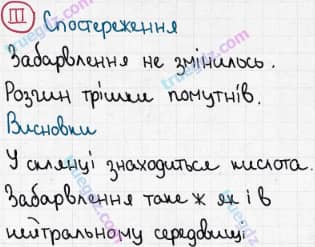 III Спостереження
Забарвлення не змінилось.
Розчин трішки помутнів.
Висновки
У склянці знаходиться кислота.
Забарвлення таке ж як і в
нейтральному середовищі